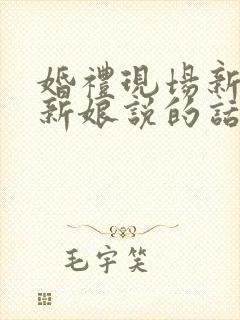 婚禮現場新
新娘説的話
毛宇笑